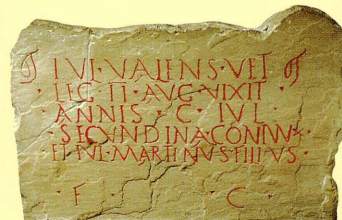 IVL·VALENS·VET
LEG·II·AVG·VIXIT
ANNIS·C·IVL
SECVNDINA CONIVNX
ET IVL·MARTINVS·FILIVS
F·C·